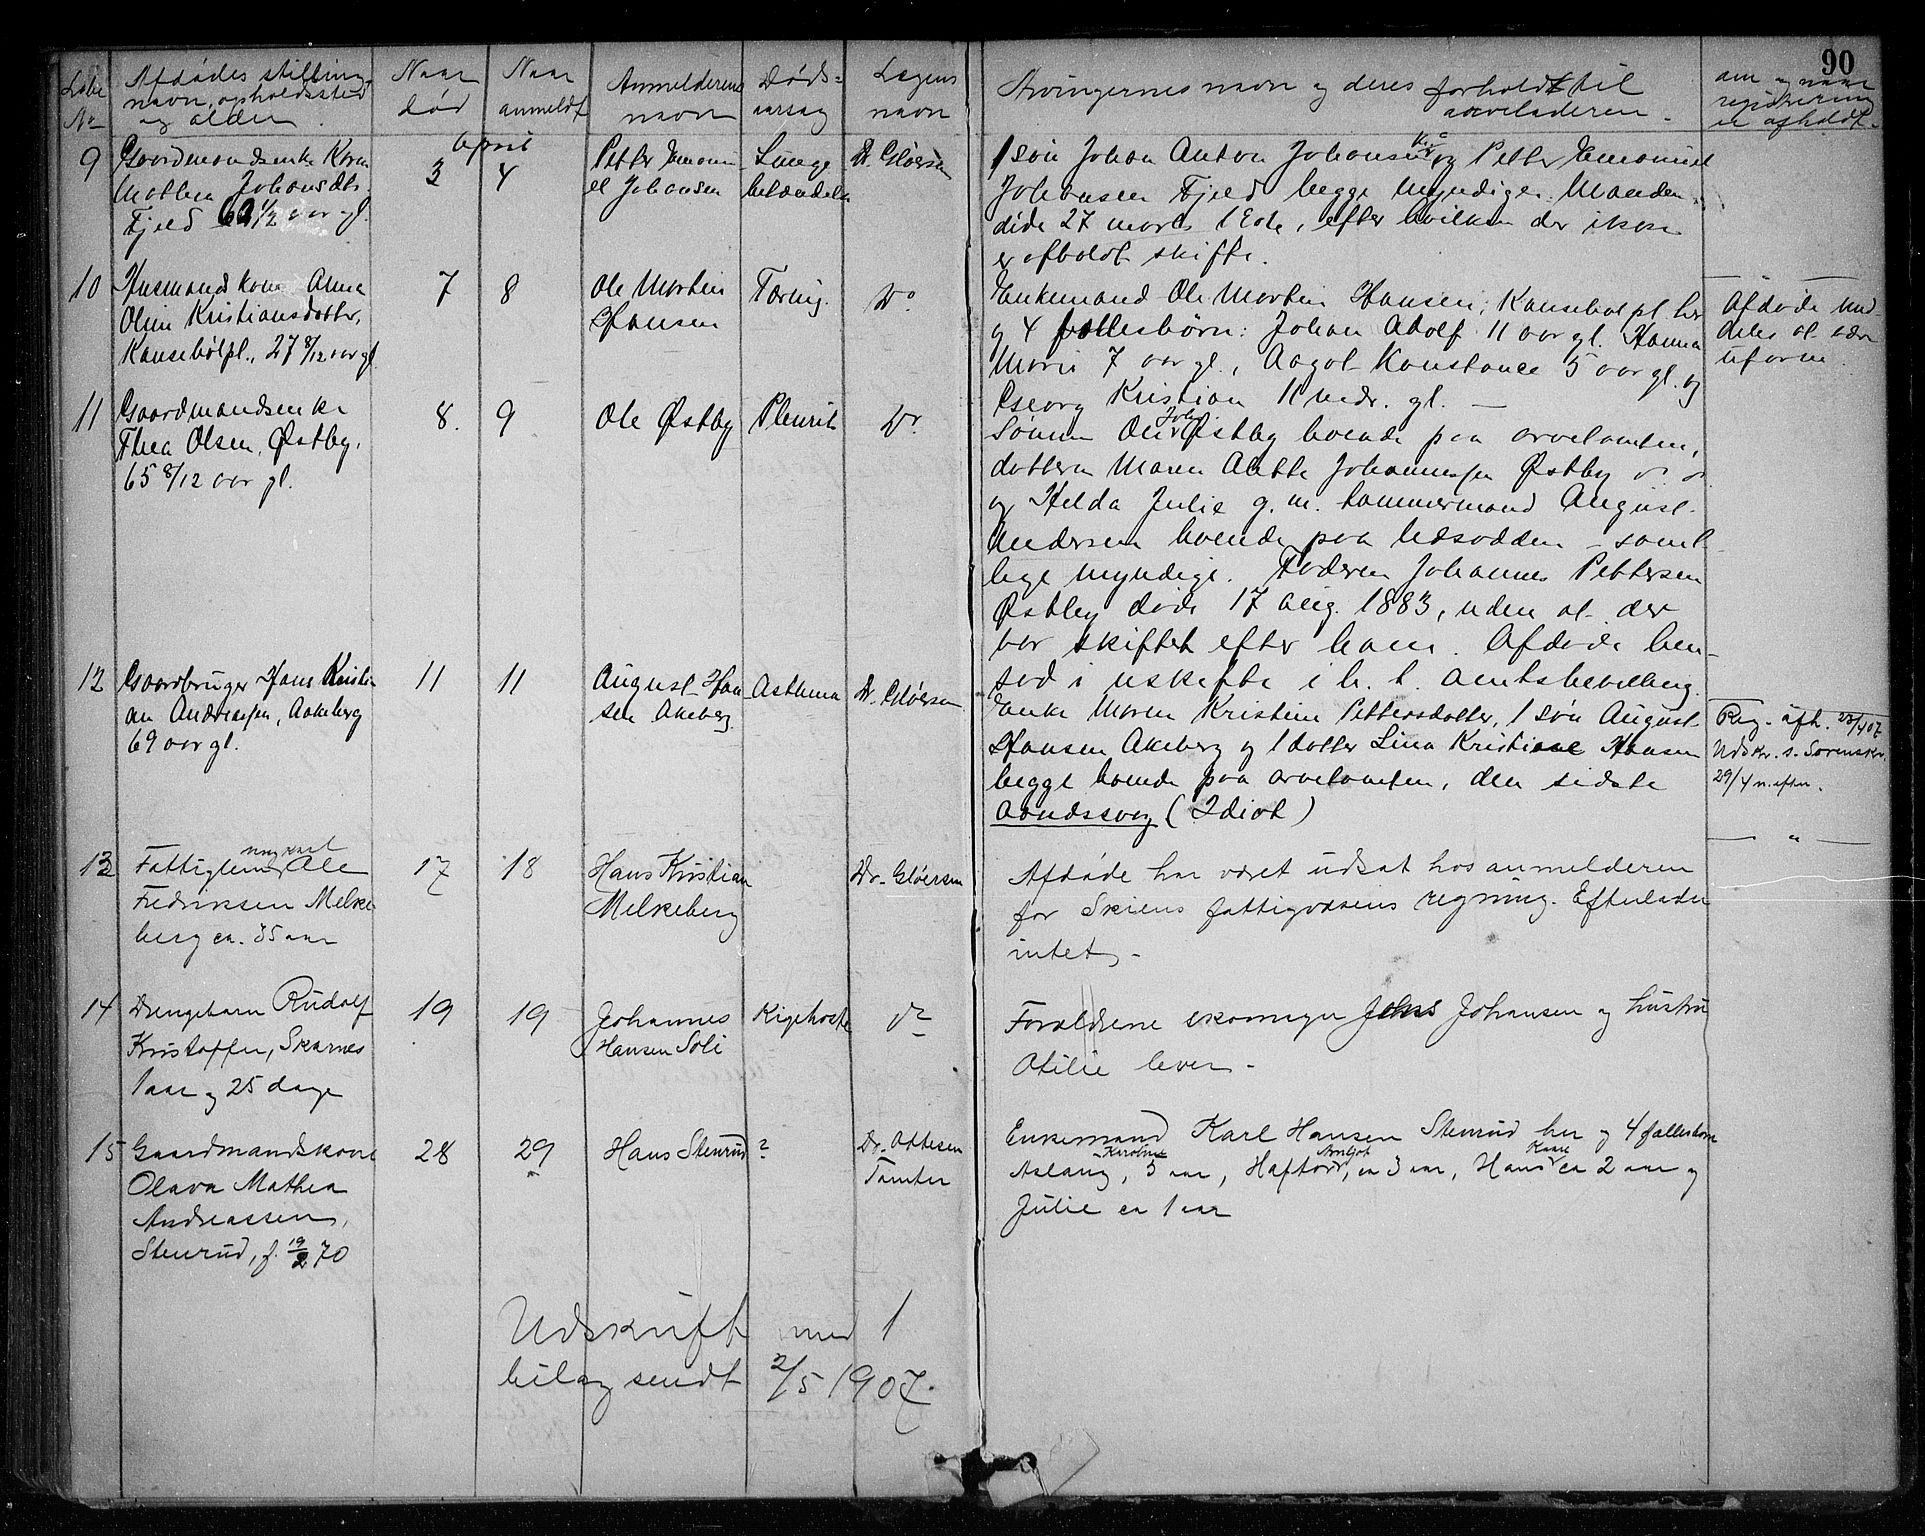 90
Løbe Nr
Afdødes stilling,
navn, opholdssted
og alder
Naar
død
Naar
anmeldt
Anmelderens
navn
Døds-
aarsag
Lægens
navn
Arvingernes navn og deres forhold til
arveladeren.
om og naar
registrering
er afholdt.
April
9
Gaardmandsenke Karen
Mathea Johansdtr.
Fjeld 62 1/2 aar gl.
3
4
Petter Emanu
el Johansen
Lunge
betændelse
Dr. Gløersen
1 søn Johan Anton Johansen og Petter Emanuel
Johansen Fjeld begge myndige. Manden
døde 27 marts, efter hvilken der ikke
er afholdt skifte.
10
Husmandskone Anne
Oline Kristiansdatter,
Kausebølpl., 27 8/12 aar gl.
7
8
Ole Martin
Hansen
Tæring.
Do
Enkemand Ole Martin Hansen, Kausebølpl. her
og 4 fællesbørn: Johan Adolf 11 aar gl. Hanna
Marie 7 aar gl., Aagot Konstance 5 aar gl. og
Georg Kristian 11 mdr. gl. —
Afdøde med-
deles at være
uformu
11
Gaardmandsenke
Thea Olsen, Østby,
65 8/12 aar gl.
8.
9
Ole Østby
Pleurit
Do.
Sønnen Ole Joh. Østby boende paa arvetomten,
datteren Maren Anette Johannesen Østby do. do.
og Hilda Julie g. m. tømmermand August
Andersen boende paa Udsodden – samt-
lige myndige. Faderen Johannes Pettersen
Østby døde 17 aug. 1883, uden at der
var skiftet efter ham. Afdøde hen-
sad i uskifte i h. t. amtsbevilling.
12
Gaardbruger Hans Kristi
an Andreassen, Aakeberg
69 aar gl.
11
11
August Han
sen Akeberg
Asthma
Dr. Gløersen
Enke Maren Kristine Pettersdatter, 1 søn August
Hansen Akeberg og 1 datter Lina Kristiane Hansen
begge boende paa arvetomten, den sidste
aandssvag (Idiot)
Reg. afh. 23/4 07.
Udskr. s. Sorenskr.
29/4 n. eftm.
— " —
13
ungkarl
Fattiglem Ole
Fredriksen Melke
berg ca. 35 aar
17
18
Hans Kristian
Melkeberg
Dr. Gløersen
Afdøde har været udsat hos anmelderen
for Skiens fattigvæsens regning. Efterlader
intet. –
14
Drengebarn Rudolf
Kristoffer, Skarnes
1 aar og 25 dage
19
19
Johannes
Hansen Soli
Kighoste
do
Forældrene skomager Johs Johansen og hustru
Otilie lever. –
15
Gaardmandskone
Olava Mathea
Andreassen,
Stenrud, f. 19/2 70
28
29
Hans Stenrud
?
Dr. Ottesen
Tomter
Enkemand Karl Hansen Stenrud her og 4 fællesbørn
Aslaug Karoline, 5 aar, Haftor Arnljot, ca 3 aar, Hans Kaare ca 2 aar og
Julie ca 1 aar
Udskrift med 1
bilag sendt 2/5 1907.